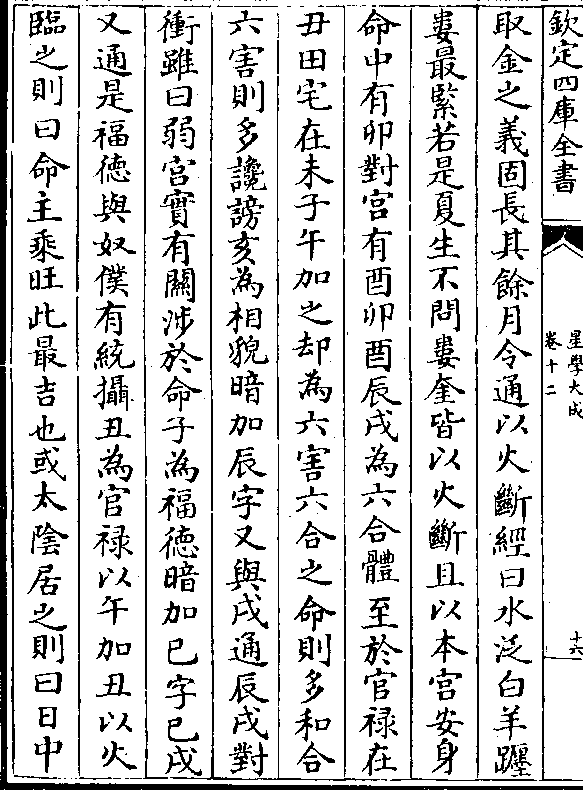 欽定四庫全書
星學大成
卷十二
十六
取金之義固長其餘月令通以火斷經曰水泛白羊躔
婁最緊若是夏生不問婁奎皆以火斷且以本宮安身
命中有卯對宮有酉卯酉辰戌為六合體至於官禄在
丑田宅在未子午加之却為六害六合之命則多和合
六害則多讒謗亥為相貌暗加辰字又與戌通辰戌對
衝雖曰弱宮實有關涉於命子為福德暗加巳字巳戌
又通是福德與奴僕有統攝丑為官禄以午加丑以火
臨之則曰命主乘旺此最吉也或太陰居之則曰日中